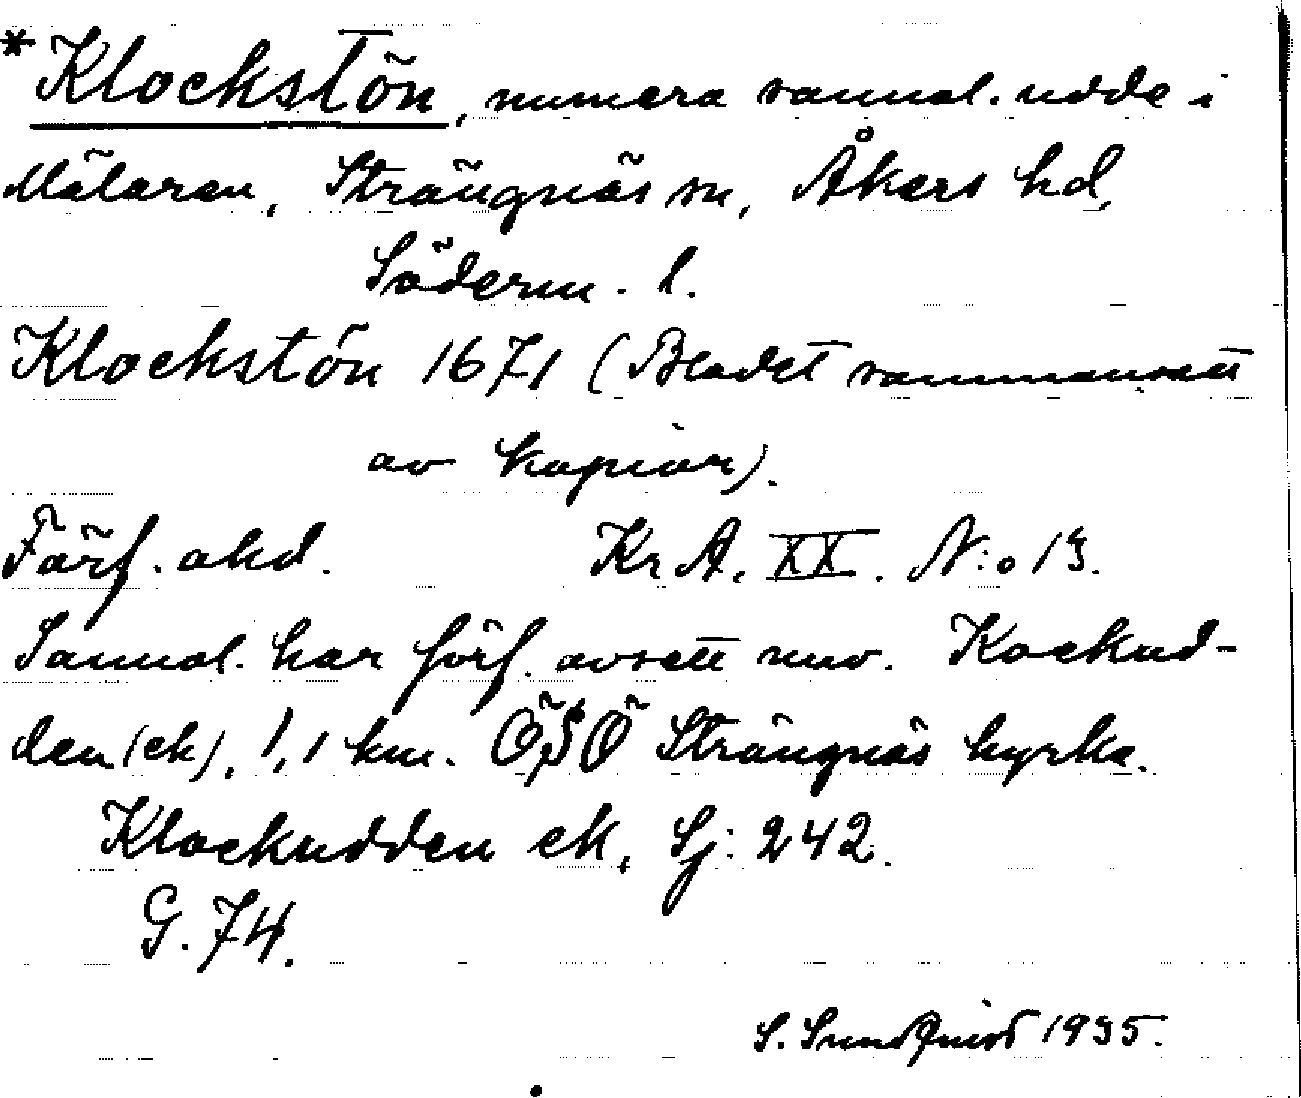 *Klockstön, numera sannol. udde i
Mälaren, Strängnäs sn, Åkers hd,
Söderm. l.
Klockstön 1671 (Bladet sammansatt
av kopior).
Förf. okd. Kr. A. XX. N:o 13.
Sannol. har förf. avsett nuv. Kockud-
den (ek), 1,1 km. ÖSÖ Strängnäs kyrka.
Klockudden ek, Sj: 242.
G. 74.
S. Sundquist 1935.